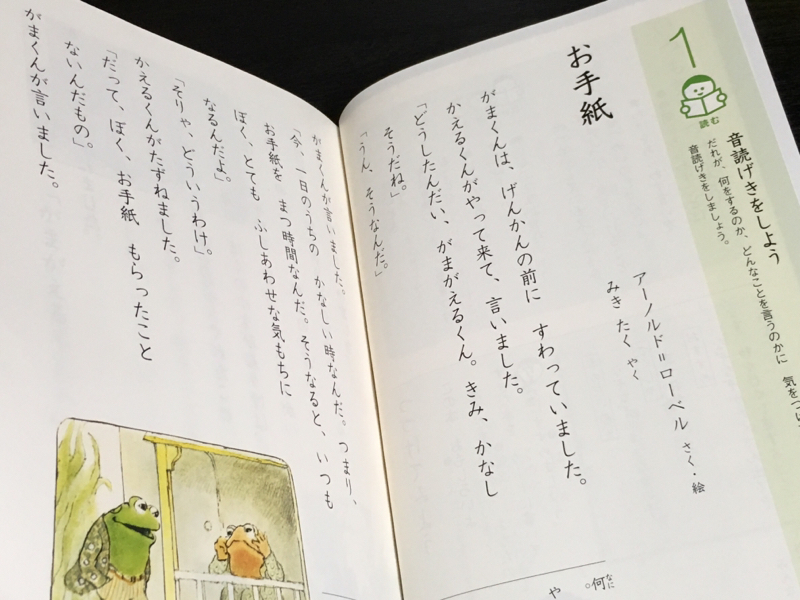 1
読む
音読げきをしよう
だれが、何をするのか、どんなことを言うのかに 気をつけ
音読げきをしましょう。
お手紙
アーノルド=ローベル さく・絵
みき たく やく
がまくんは、げんかんの前に すわっていました。
かえるくんがやって来て、言いました。
「どうしたんだい、がまがえるくん。きみ、かなし
そうだね。」
「うん、そうなんだ。」
何
なに
や
がまくんが言いました。
「今、一日のうちの かなしい時なんだ。つまり、
お手紙を まつ時間なんだ。そうなると、いつも
ぼく、とても ふしあわせな気もちに
なるんだよ。」
「そりゃ、どういうわけ。」
かえるくんがたずねました。
「だって、ぼく、お手紙 もらったこと
ないんだもの。」
がまくんが言いました。